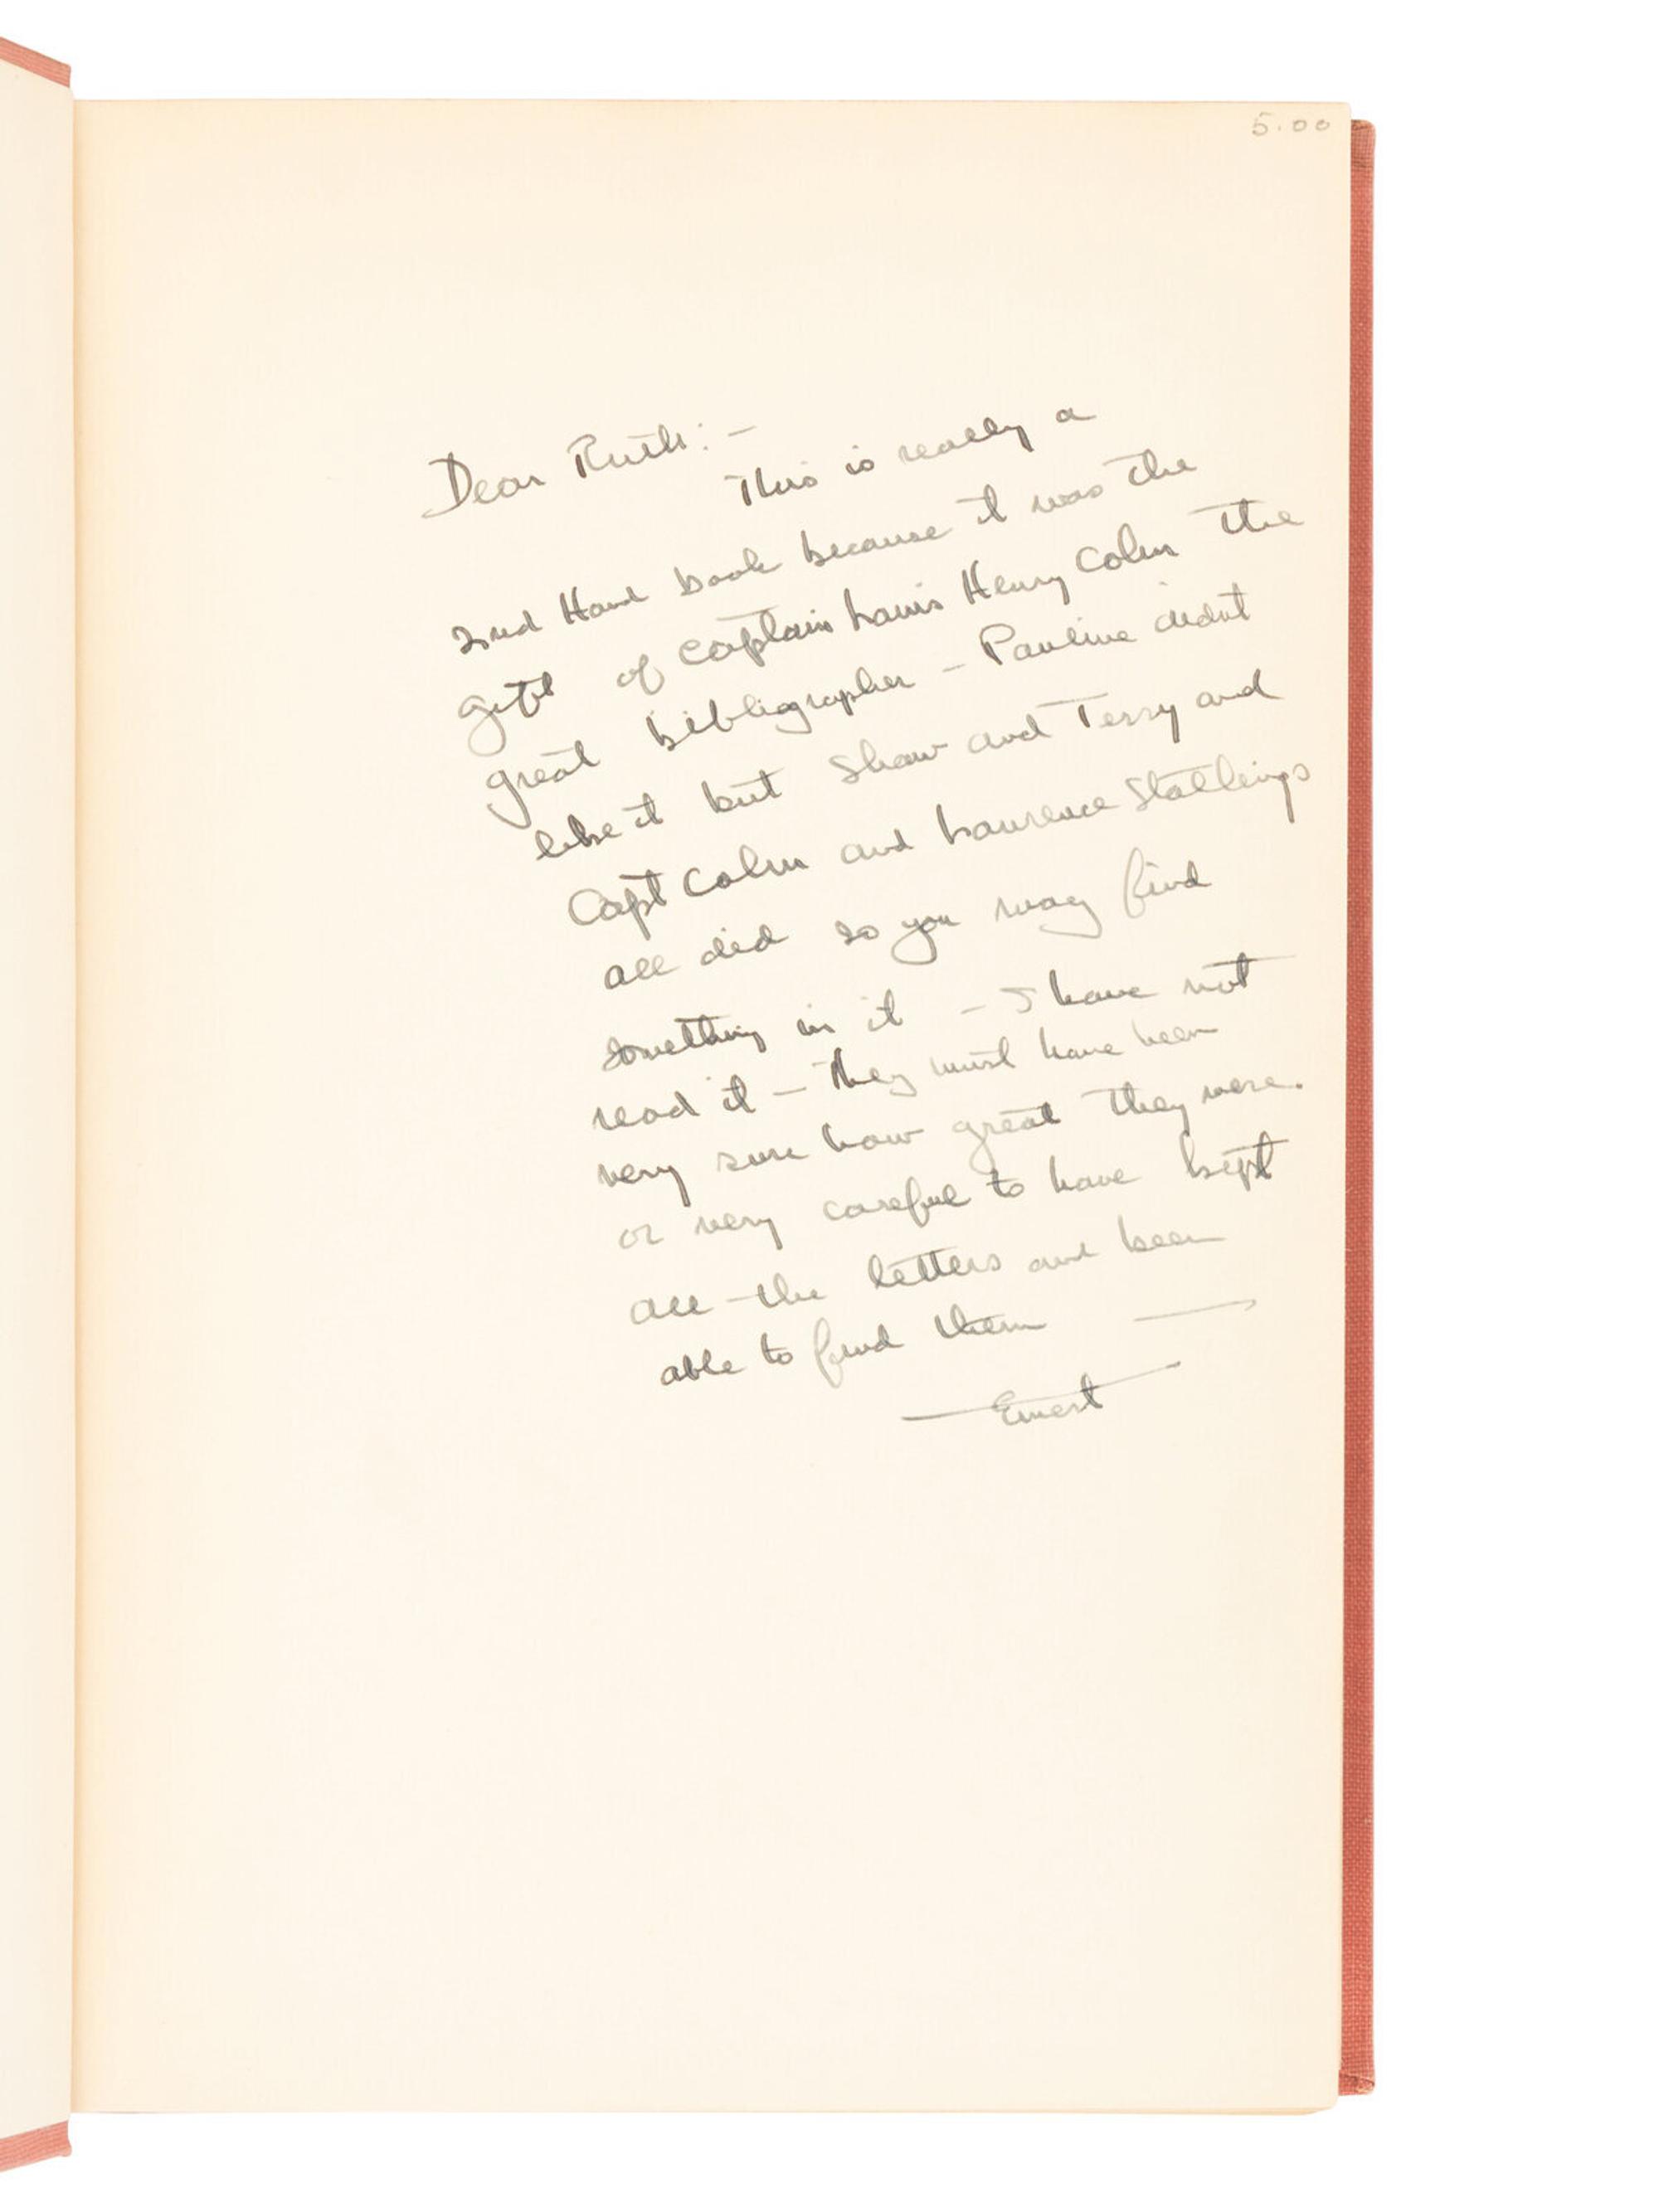 5.00
Dear Ruth: —
This is really a
2nd Hand book because it was the
gift of Captain Louis Henry Cohn the
great bibliographer — Pauline didnt
like it but Shaw and Terry and
Capt Cohn and Laurence Stallings
all did so you may find
something in it — I have not
read it — They must have been
very sure how great they were.
or very careful to have kept
all the letters and been
able to find them —
— Ernest